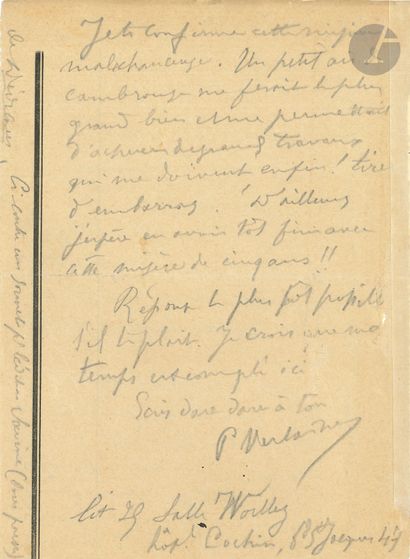 Je te confirme cette
malechanceuse. Un petit
cambrouse me ferait le plus
grand bien et me permettrait
d'achever de grands travaux
qui me doivent enfin ! tirer
d'embarras. D'ailleurs
j'espère en avoir tôt fini avec
cette misère de cinq ans !!
Réponse le plus tôt possible
s'il te plaît. Je crois que mon
temps est compté ici
Écris dare dare à ton
P Verlaine
Lit 29 Salle Woillez
hôp. Cochin, St Jacques 47
Ci contre un sonnet